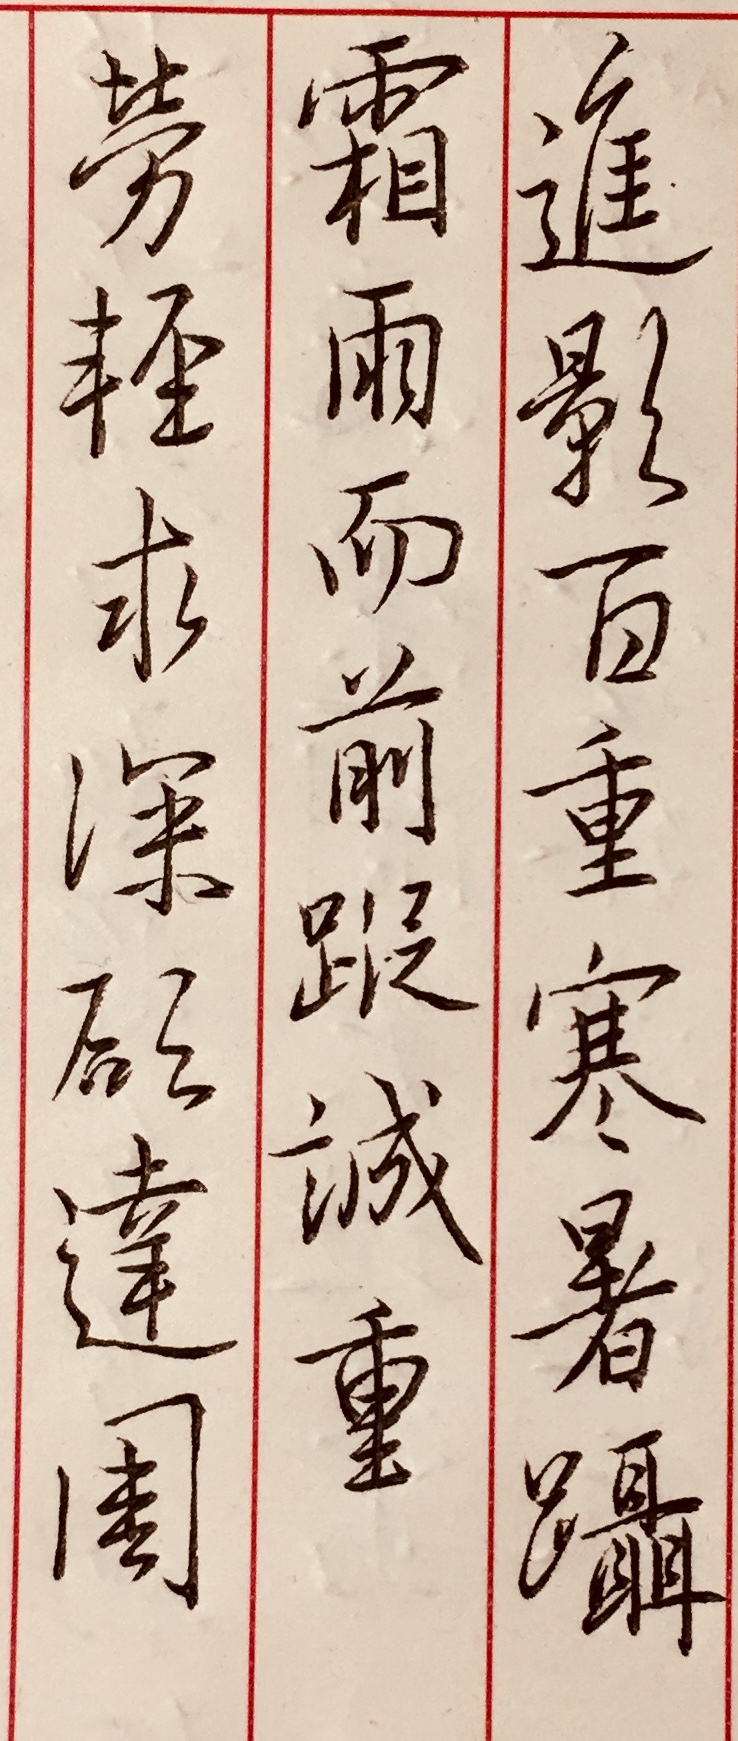 進影百重寒暑躡
霜雨而前蹤誠重
勞輕求深願達周